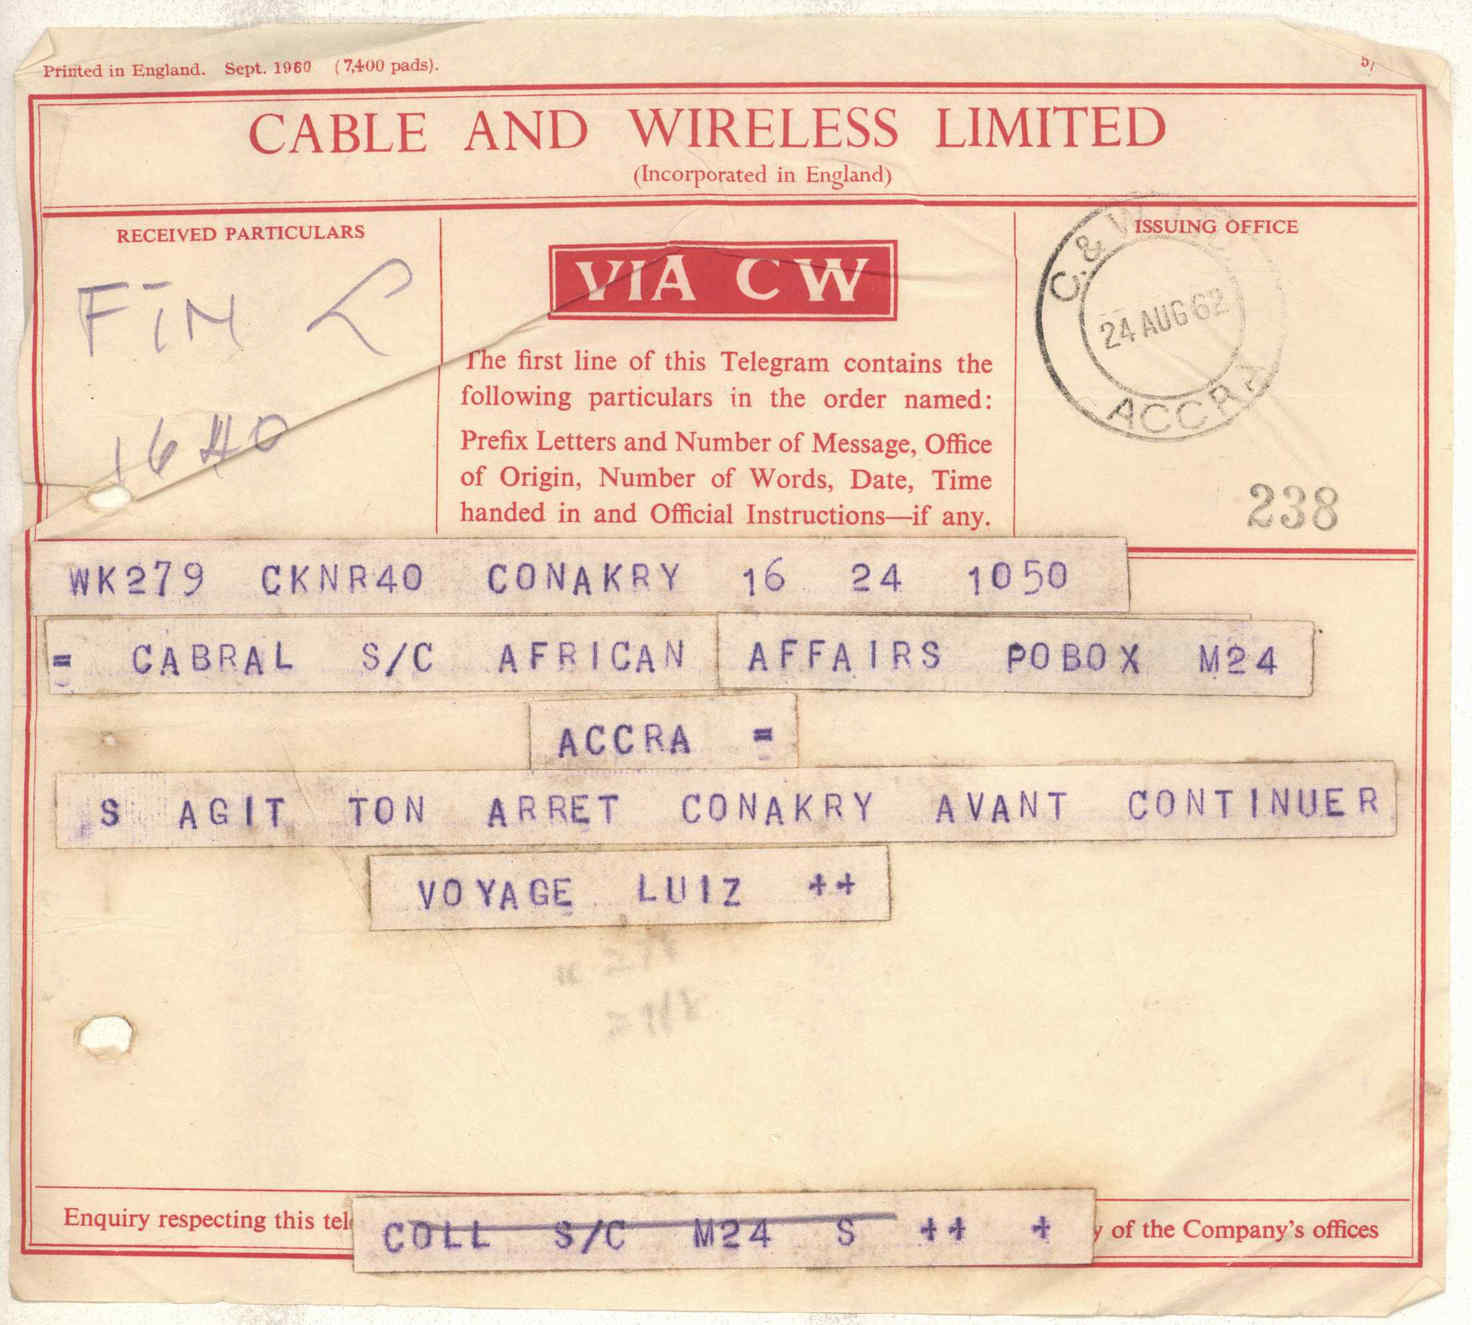 Printed in England. Sept. 1960 (7,400 pads).
CABLE AND WIRELESS LIMITED
(Incorporated in England)
RECEIVED PARTICULARS
FIN L
1640
VIA CW
The first line of this Telegram contains the
following particulars in the order named:
Prefix Letters and Number of Message, Office
of Origin, Number of Words, Date, Time
handed in and Official Instructions—if any.
ISSUING OFFICE
C. & W.
24 AUG 62
ACCRA
238
WK279 CKNR40 CONAKRY 16 24 1050
= CABRAL S/C AFRICAN AFFAIRS POBOX M24
ACCRA =
S AGIT TON ARRET CONAKRY AVANT CONTINUER
VOYAGE LUIZ ++
Enquiry respecting this tel
COLL S/C M24 S ++ +
y of the Company's offices